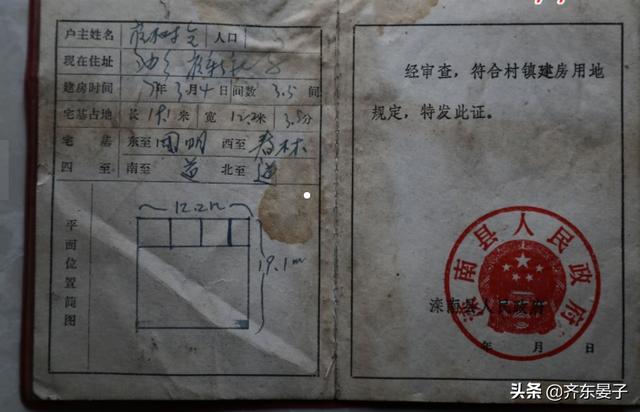 户主姓名 人口
现在住址
建房时间 年3月4日间数3.5间
宅基占地 长19.1米 宽12.2米 3.5分
宅基 东至 西至春林
四至 南至道 北至道
平面位置简图
12.2m
19.1m
经审查，符合村镇建房用地
规定，特发此证。
滦南县人民政府
滦南县人民政府
年 月 日
头条 @齐东晏子